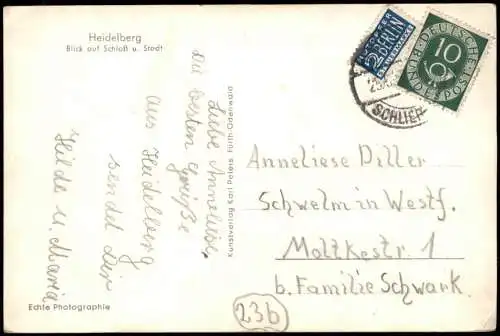 Heidelberg
Blick auf Schloß u. Stadt
Liebe Anneliese,
Die besten Grüße
aus Heidelberg
sendet Dir
Hilde u. Maria
Echte Photographie
Kunstverlag Karl Peters Fürth/Odenwald
NOTOPFER
2 BERLIN
STEUERMARKE
DEUTSCHE BUNDESPOST
10
SCHLIER
Anneliese Diller
Schwelm in Westf.
Moltkestr. 1
b. Familie Schwark.
23b